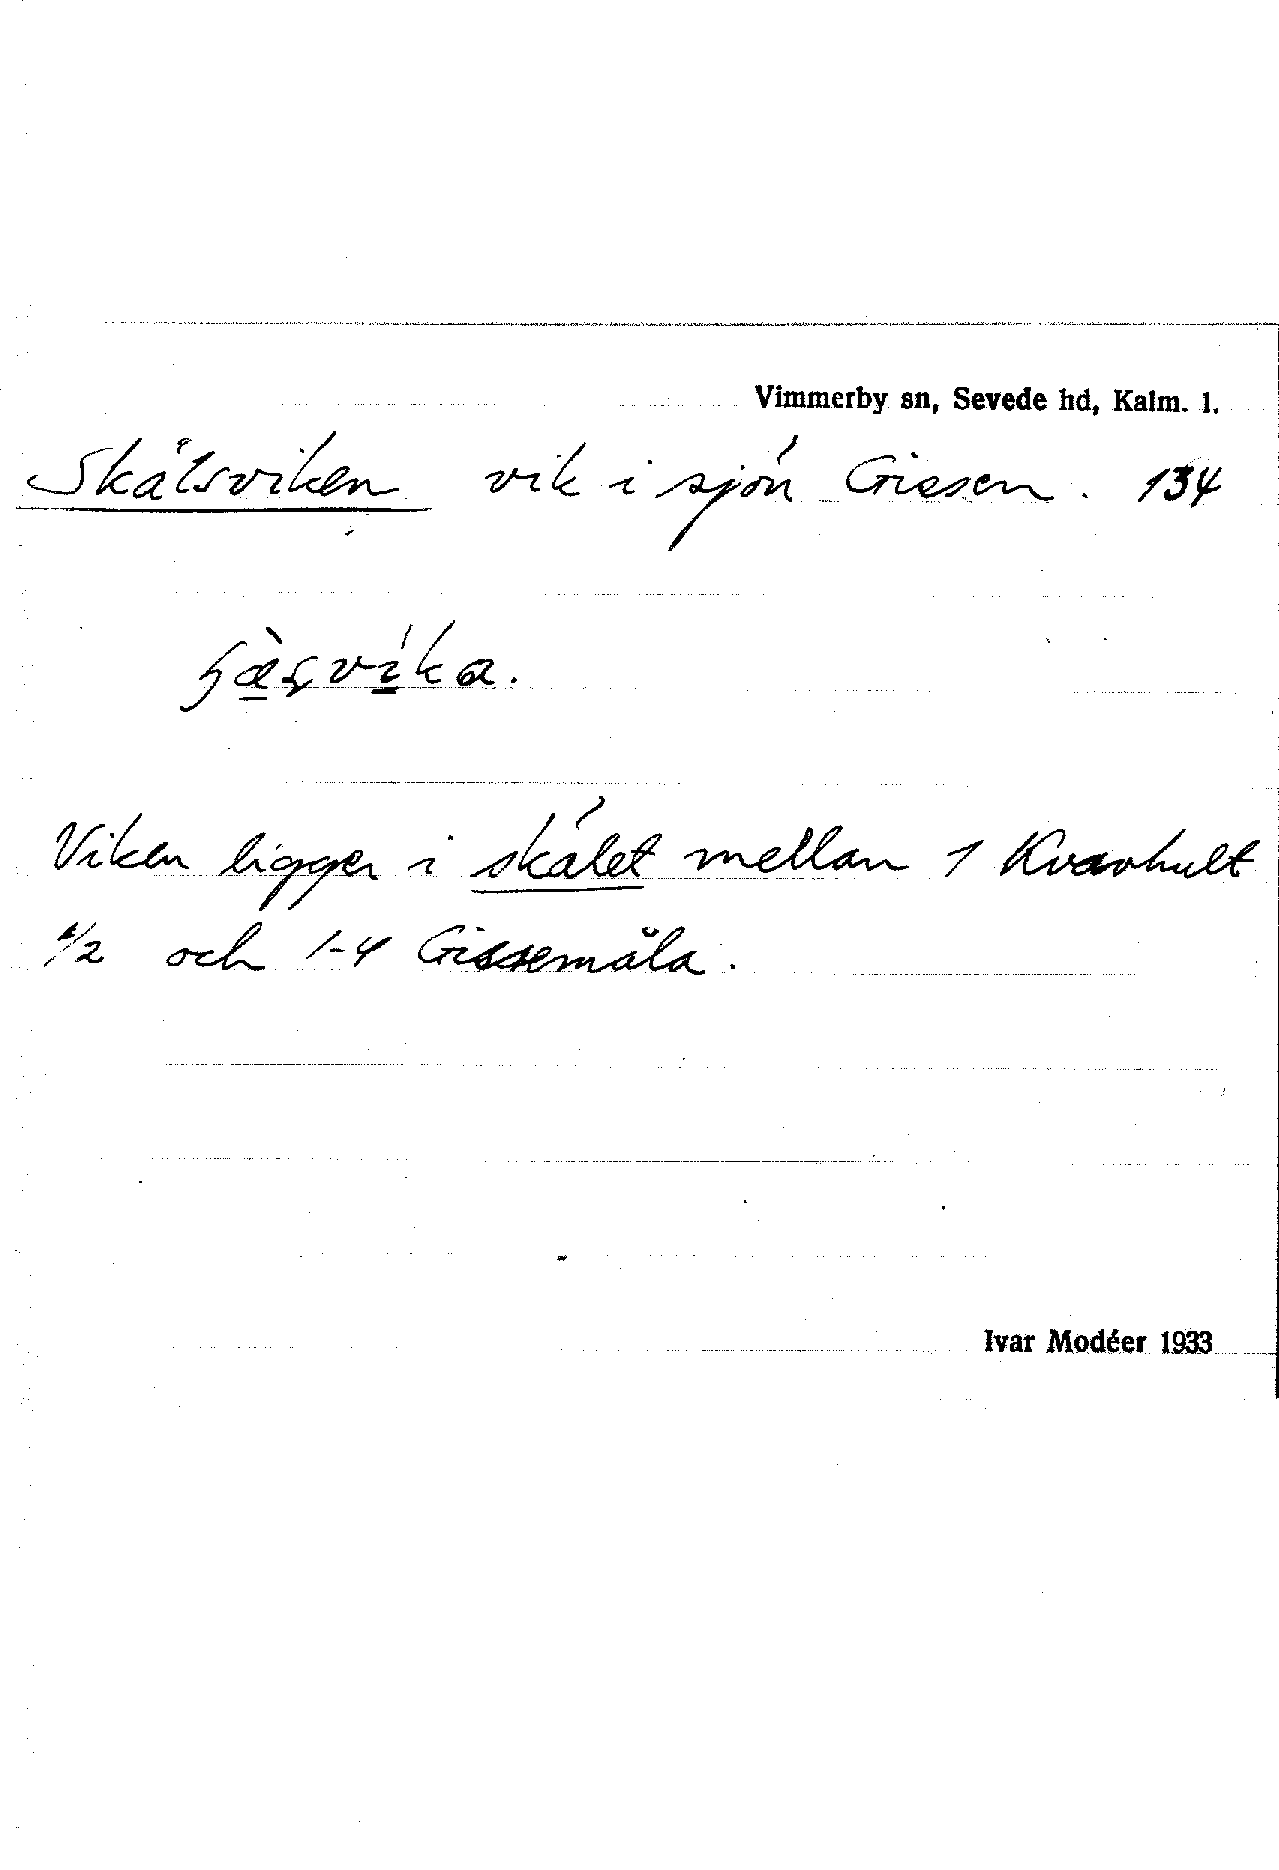 Vimmerby sn, Sevede hd, Kalm. l.
Skälsviken vik i sjön Gissen. 134
vika.
Viken ligger i skälet mellan 1 Kvarnhult
1/2 och 1-4 Gissemåla.
Ivar Modéer 1933